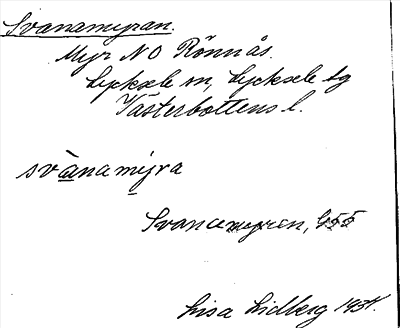 Svanamyran.
Myr NO Rönnås.
Lycksele sn, Lycksele tg
Västerbottens l.
svànamýra
Svanamyren, G55
Lisa Lidberg 1931.